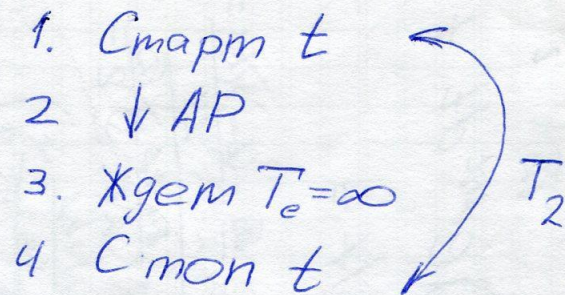 1. Старт t
2 ↓ АР
3. Ждет Tₑ=∞
4 Стоп t
T₂